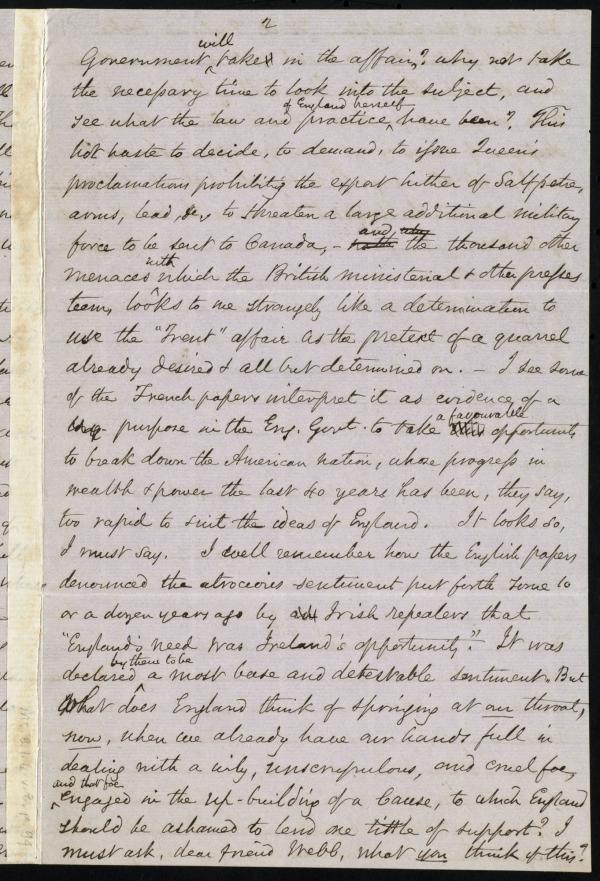 2
Government will take in the affair? why not take
the necessary time to look into the subject, and
see what the law and practice of England herself have been? This
hot haste to decide, to demand, to issue Queen's
proclamations prohibiting the export hither of Saltpetre,
arms, lead, &c, to threaten a large additional military
force to be sent to Canada, - and the thousand other
menaces with which the British ministerial & other presses
teem, looks to me strangely like a determination to
use the "Trent" affair as the pretext of a quarrel
already desired & all but determined on. - I see some
of the French papers interpret it as evidence of a
purpose in the Eng. Govt. to take a favourable opportunity
to break down the American nation, whose progress in
wealth & power the last 40 years has been, they say,
too rapid to suit the ideas of England. It looks so,
I must say. I well remember how the English papers
denounced the atrocious sentiment put forth some 10
or a dozen years ago by Irish repealers that
"England's need was Ireland's opportunity". It was
declared by them to be a most base and detestable sentiment. But
What does England think of springing at our throat,
now, when we already have our hands full in
dealing with a wily, unscrupulous, and cruel foe,
and that foe engaged in the up-building of a Cause, to which England
should be ashamed to lend one tittle of support? I
must ask, dear friend Webb, what you think of this?